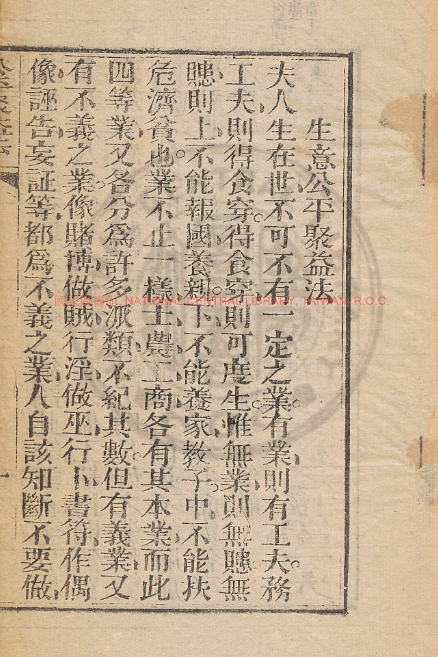 生意公平聚益法
夫人生在世不可不有一定之業有業則有工夫務
工夫則得食穿得食穿則可度生惟無業則無賍無
賍則上不能報國養親下不能養家教子中不能扶
危濟貧也業不止一樣士農工商各有其本業而此
四等業又各分爲許多派類不紀其數但有義業又
有不義之業像賭博做賊行淫做巫行卜書符作偶
像誣告妄証等都爲不義之業人自該知斷不要做
NATIONAL CENTRAL LIBRARY, TAIWAN, R.O.C.
一